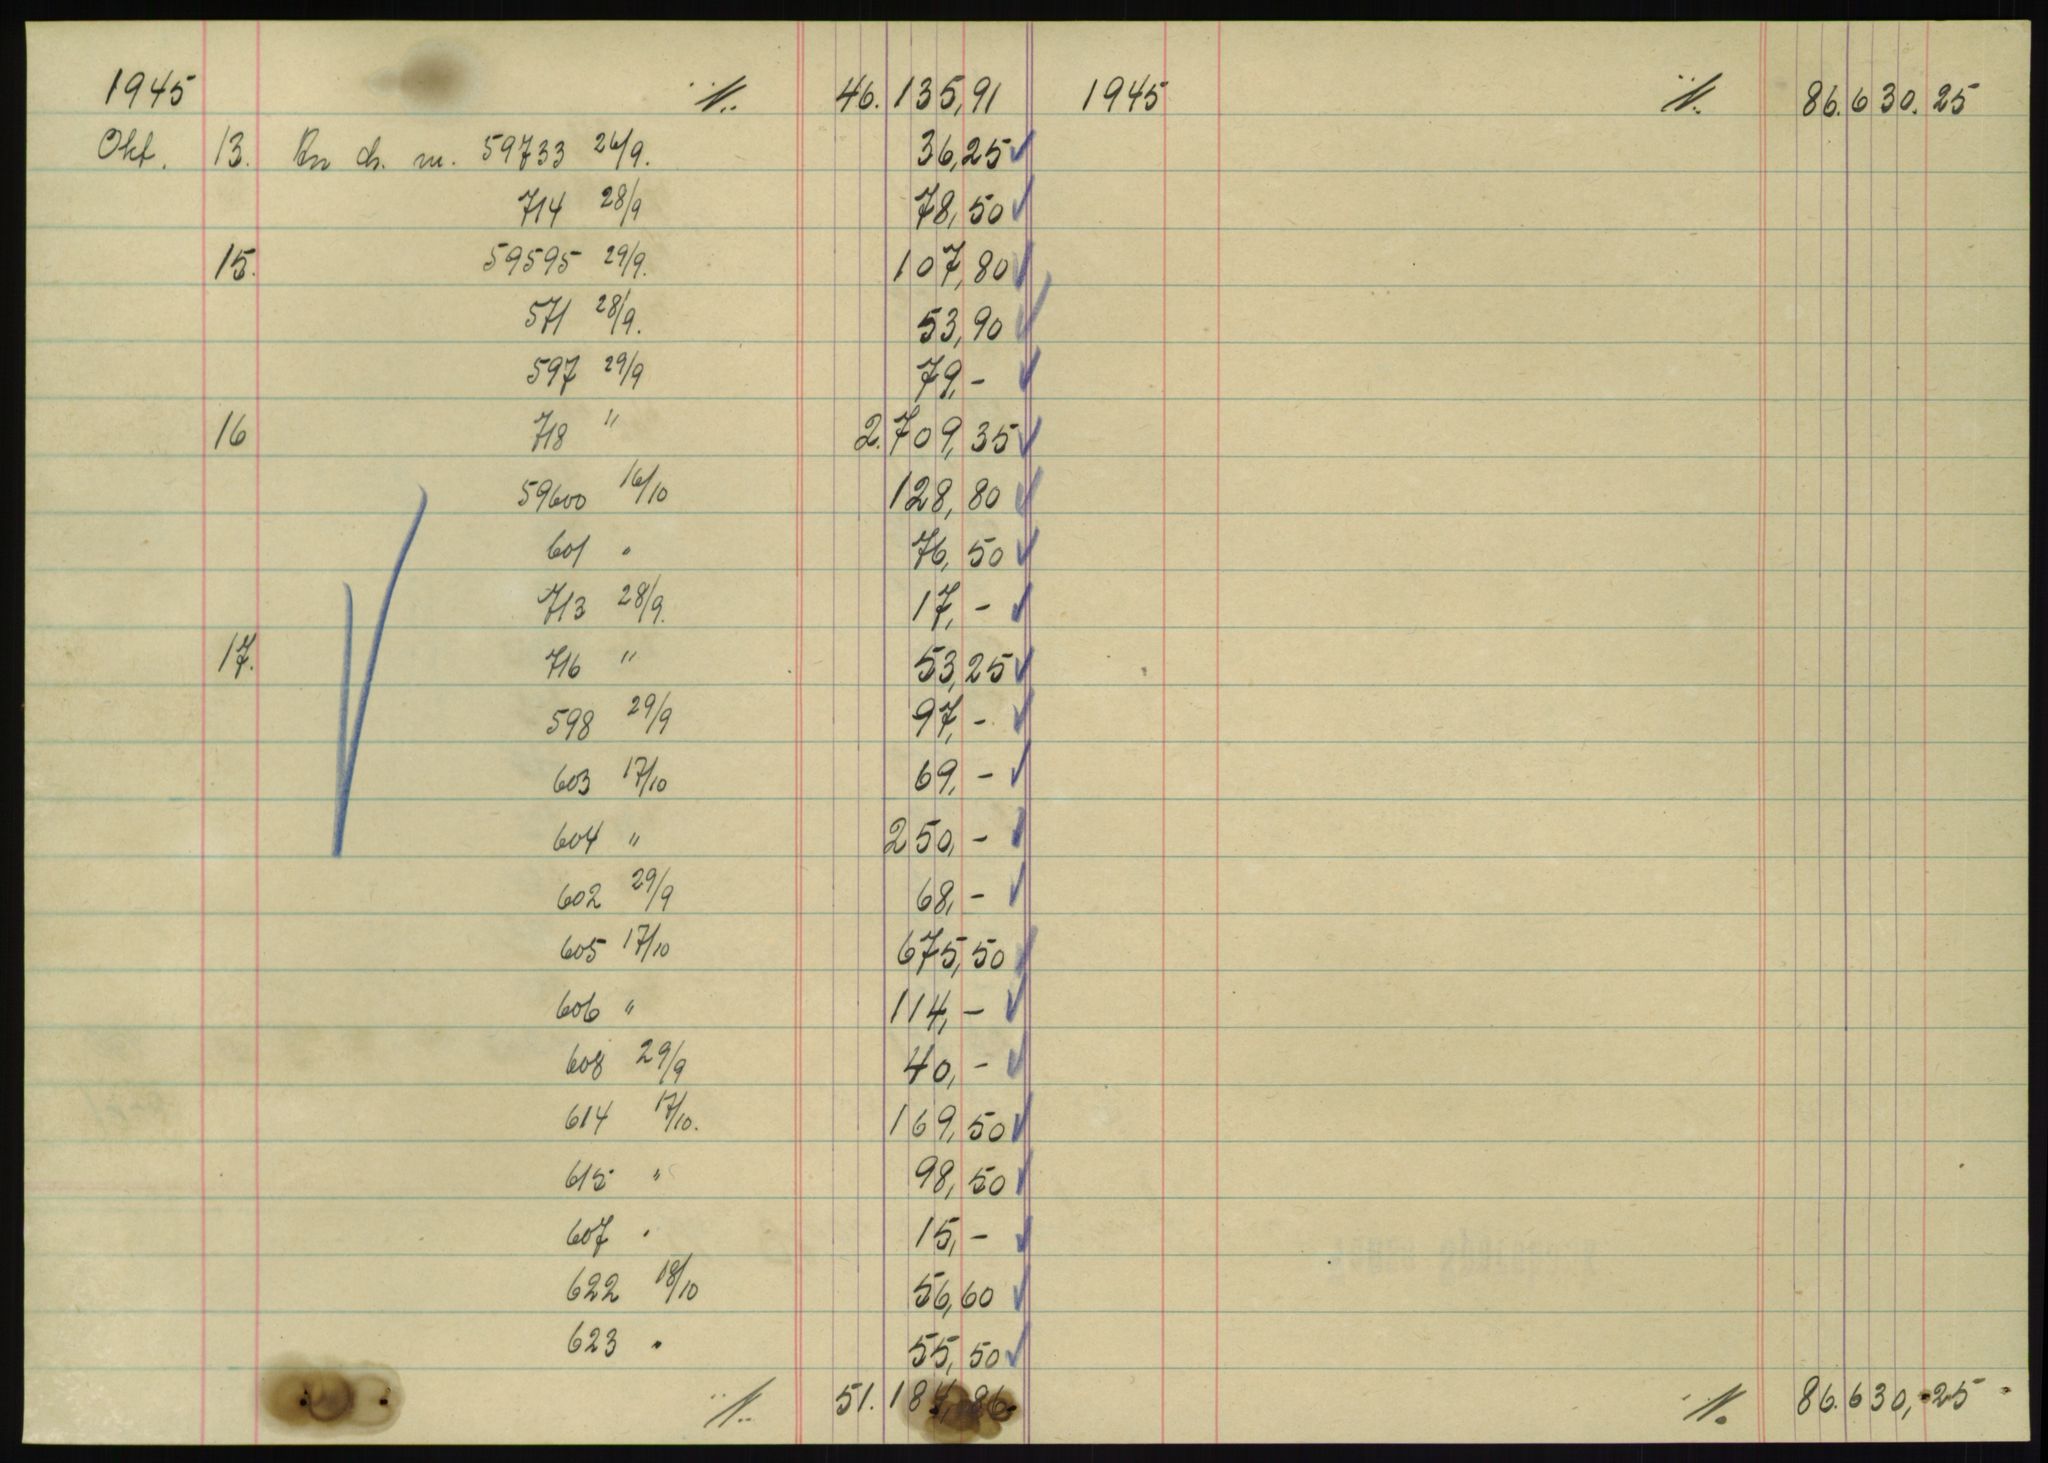 1945 46.135,91 1945 86.630.25
Okt. 13. m. 59733 26/9. 36,25
714 28/9 78,50
15. 59595 29/9. 107,80
571 28/9. 53,90
597 29/9 79,-
16 718 " 2.709,35
59600 16/10 128,80
601 " 76,50
713 28/9. 17,-
17. 716 " 53,25
598 29/9 97,-
603 17/10 69,-
604 " 250,-
602 29/9 68,-
605 17/10 675,50
606 " 114,-
608 29/9 40,-
614 17/10. 169,50
615 " 98,50
607 " 15,-
622 18/10 56,60
623 " 55,50
51.184,86 86.630,25